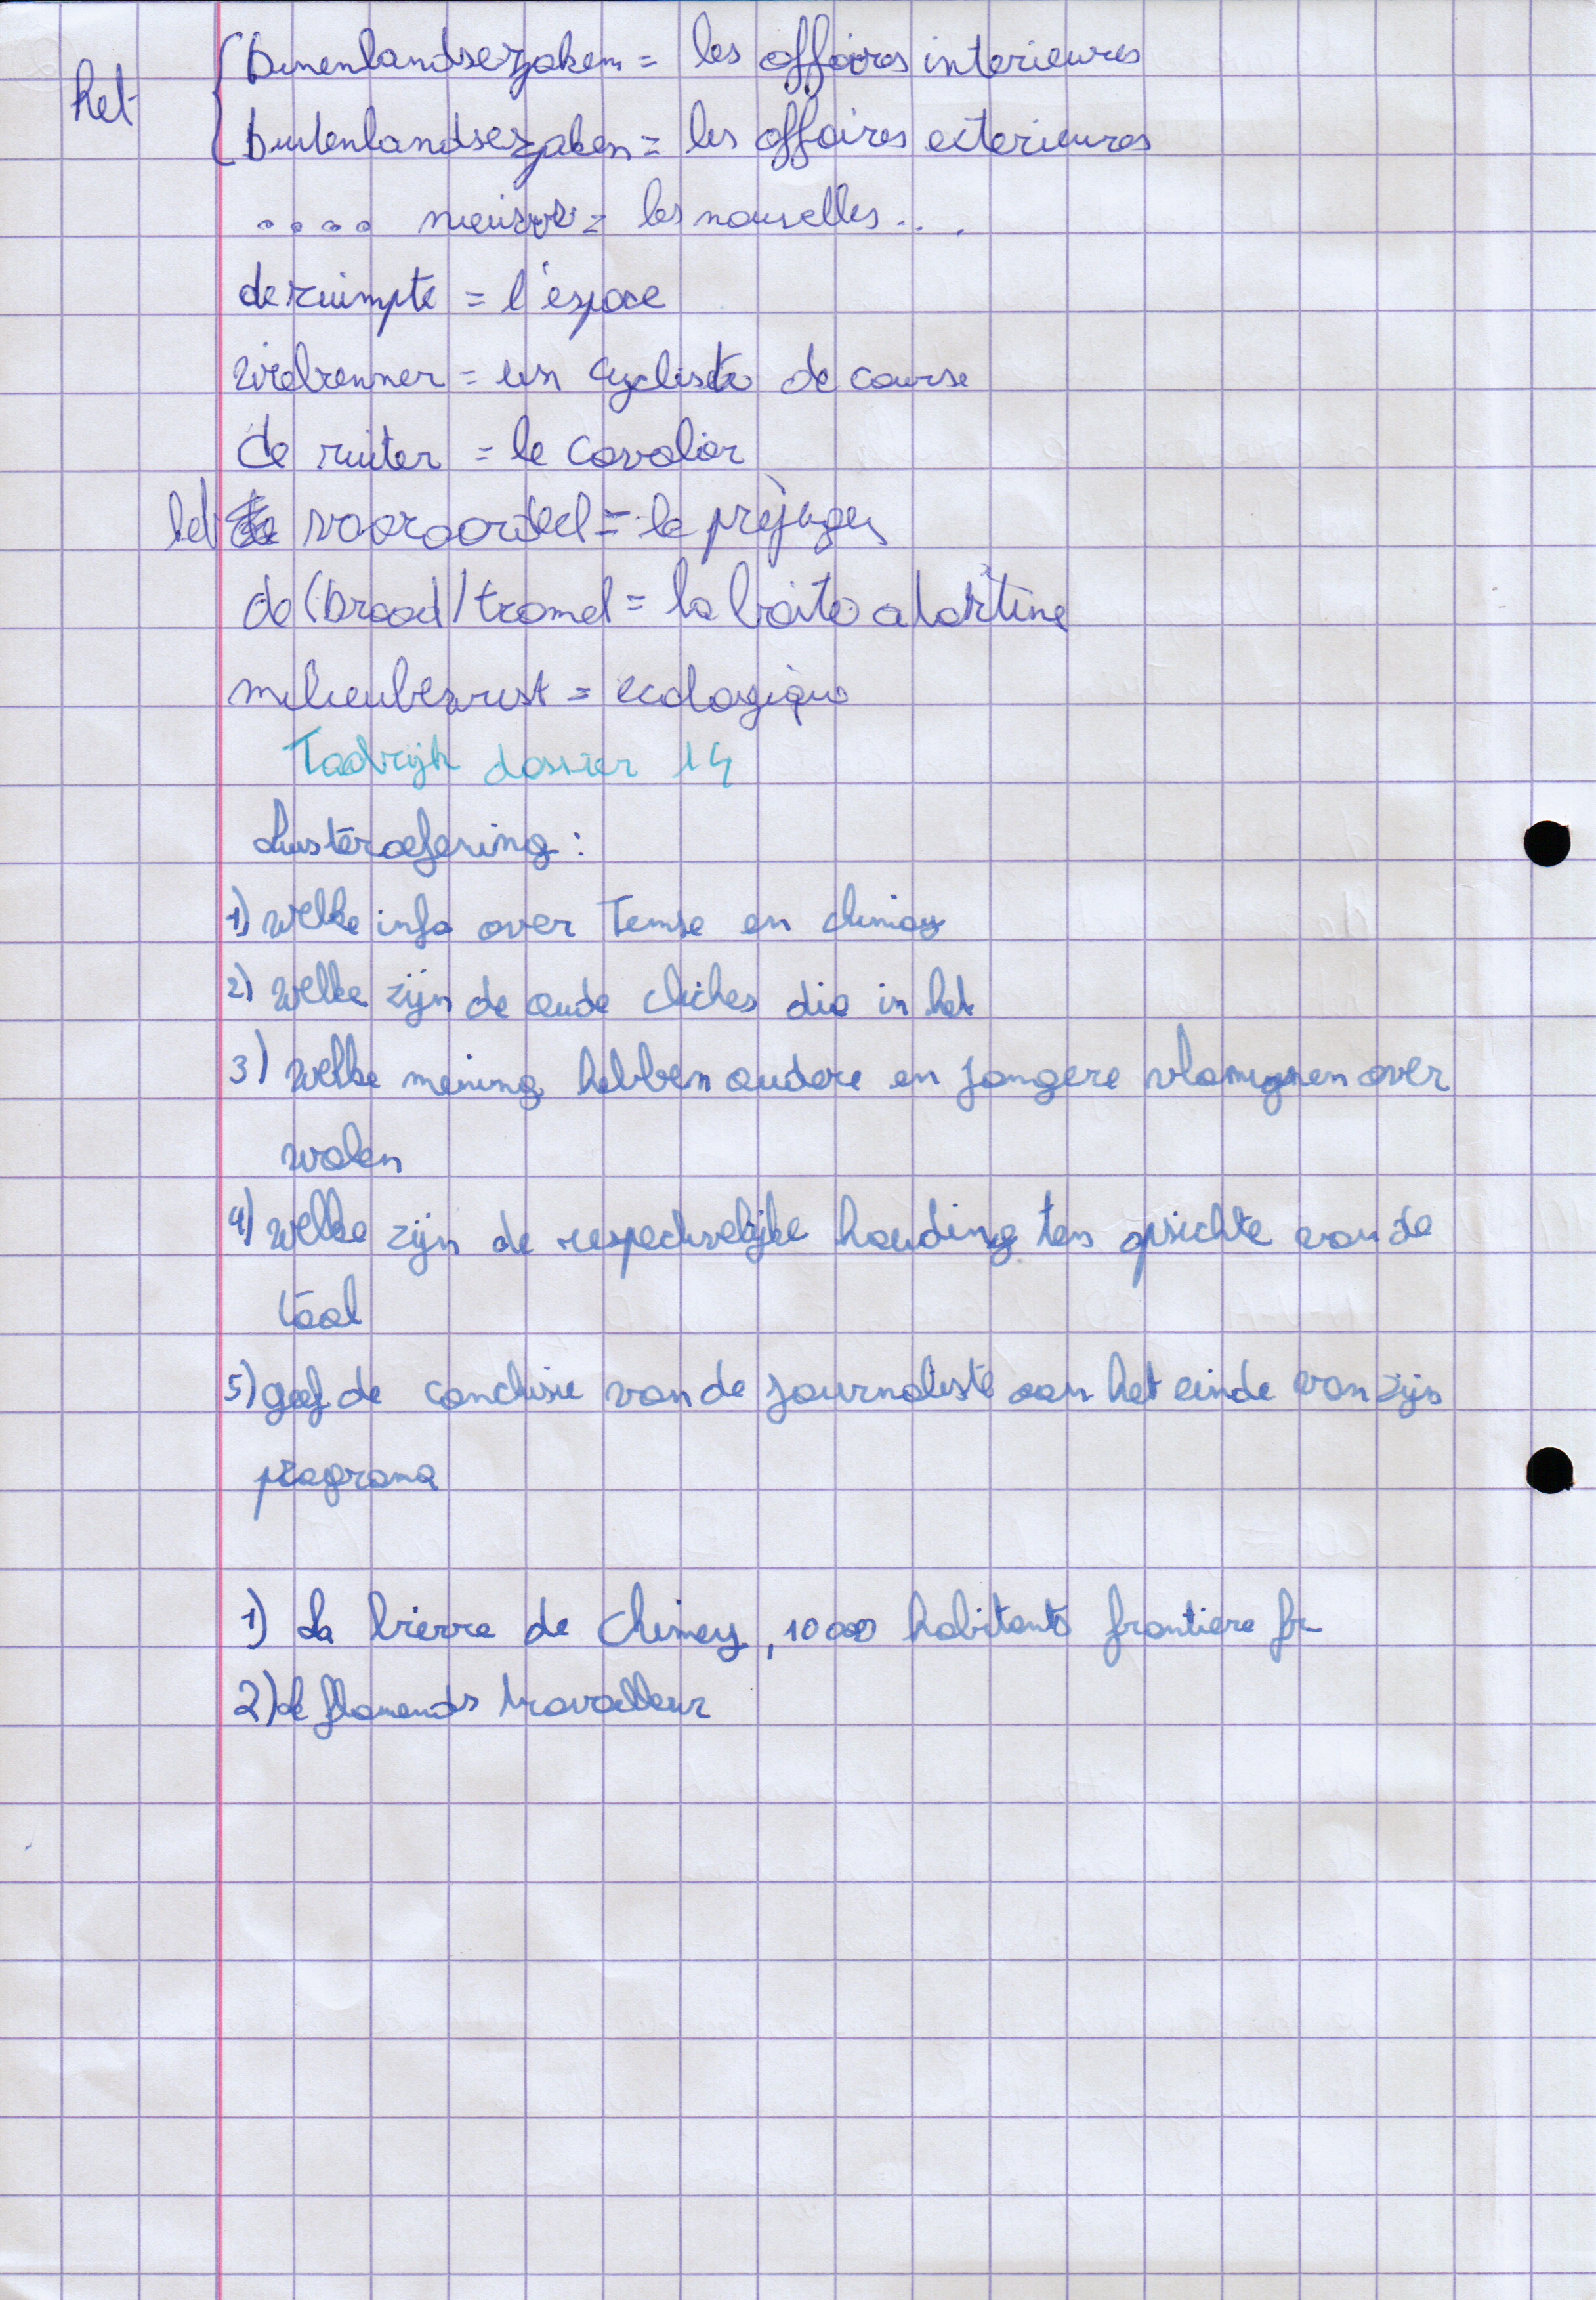 het { binenlandsezaken = les affaires interieures
buitenlandsezaken = les affaires exterieures
.... nieuws = les nouvelles ...
de ruimpte = l'espace
wielrenner = un cycliste de course
de ruiter = le cavalier
het vooroordeel = le préjuger
de (brood) tromel = la boite a tartine
milieubewust = ecologique
Taalrijk dossier 14
Luisteroefening :
1) welke info over Temse en chimay
2) welke zijn de oude cliches die in het
3) welke mening hebben oudere en jongere vlamignen over
walen
4) welke zijn de respectivelijke houding ten opsichte van de
taal
5) geef de conclusie van de journaliste aan het einde van zijn
programa
1) La bierre de Chimay, 10 000 habitants frontiere fr
2) le flamands travailleur